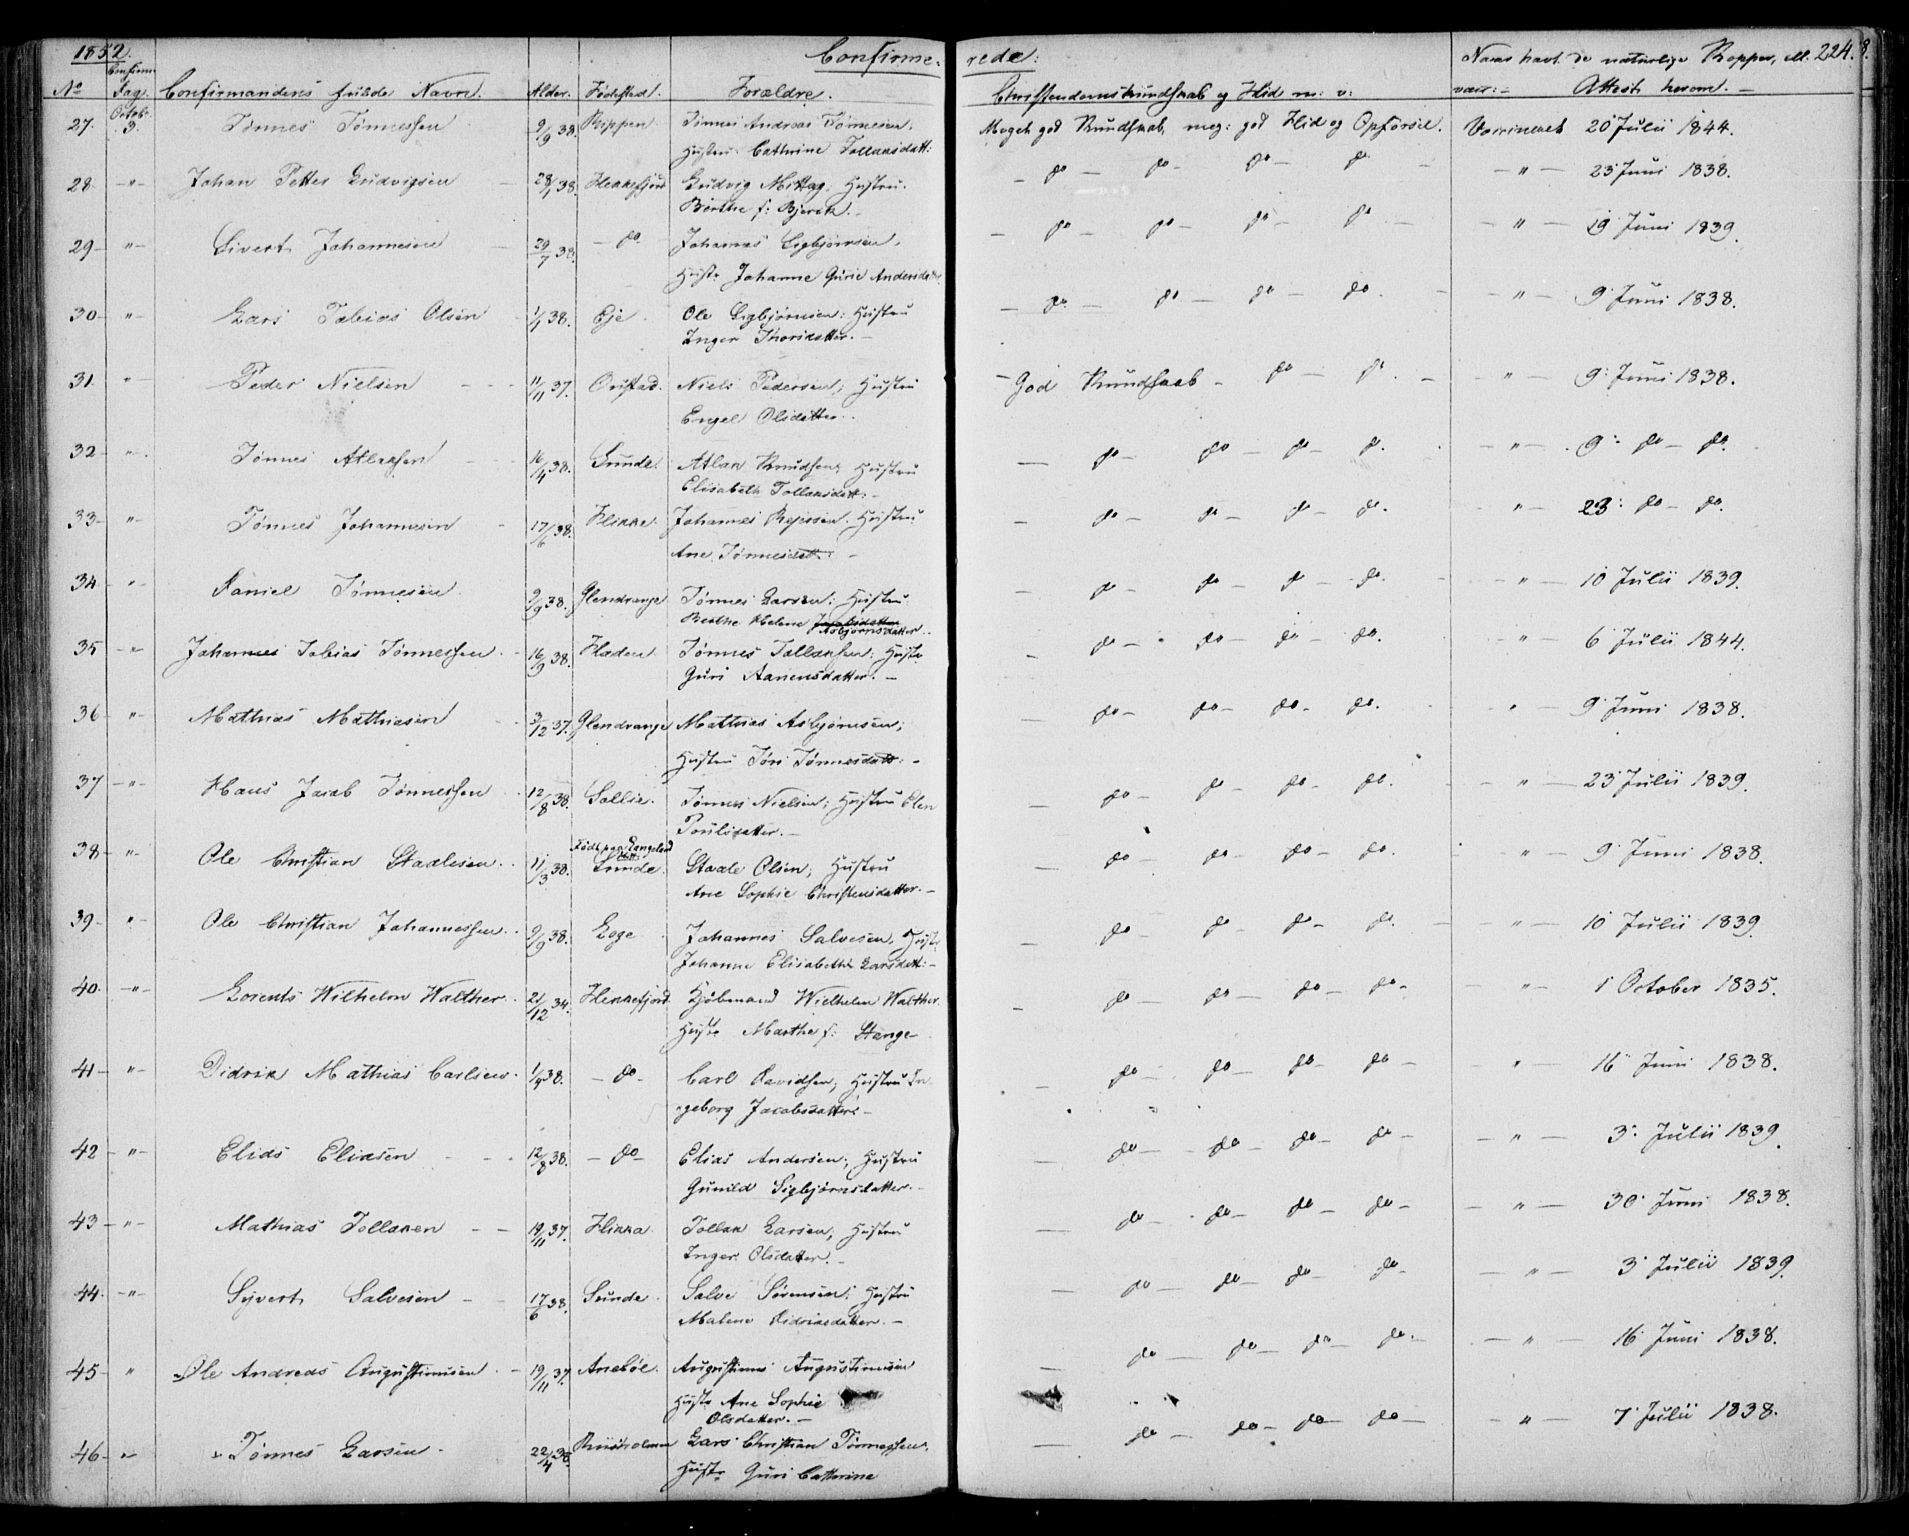 1852.
Confirme-
rede:
Naar havt de naturlige Kopper, ell. 224.
No
Confirm. Dag.
Confirmandens fulde Navn.
Alder.
Fødested.
Forældre.
Christendomskundskab og Flid m: v:
vacc:-
Attest herom. -
27. Octob. 3. Tønnes Tønnessen 9/9 38. Rippen Tønnes Andreas Tønnesen, Meget god Kundskab, meg: god Flid og Opførsel. Vaccineret 20 Julii 1844.
Hustru Cathrine Tollaksdatt:
28. -"- Johan Petter Ludvigsen 28/1 38. Hekkefjord Ludvig Mittag, Hustru - do - do - do - do - " - 23 Juni 1838.
Berthe f: Bjerck. -
29 -"- Sivert Johannesen 29/7 38. - do Johannes Sigbjørnsen, - do - do - do - do - " - 19 Juni 1839.
Hustr Johanne Gurie Andersdatt
30 -"- Lars Tobias Olsen 1/1 38. Eje Ole Sigbjørnsen: Hustru - do - do - do - do. - " - 9 Juni 1838.
Inger Thorsdatter. -
31. " Peder Nielsen 11/11 37. Onstad. Niels Pedersen; Hustru - God Kundskab - do - do. - " - 9: Juni 1838.
Engel Olsdatter.
32 -"- Tønnes Atlaksen 16/4 38. Sunde. Atlak Knudsen; Hustru - do - do - do - do. - " - 9: do - do
Elisabeth Tollaksdatt: -
33- " Tønnes Johannesen 17/6 38. Flikke. Johannes Rejersen. Hustru - do - do - do - do. " - 23: do - do.
Ane Tønnesdatt. -
34 " Daniel Tønnesen 9/9 38. Glendrange Tønnes Larsen: Hustru - do do - do - do. - " - 10 Julii 1839.
Berthe Helene Jacobsdatter Asbjørnsdatter.
35 -"- Johannes Tobias Tønnessen. 16/9 38. Fladen. Tønnes Tollaksen: Hustr - do - do - do - do. " - 6 Julii 1844.
Guri Aanensdatter. -
36 " Mathias Mathiasen 3/12 37. Glendrange Mathias Asbjørnsen; do - do - do - do. " - 9 Juni 1838.
Hustru Tøri Tønnesdatt: -
37 -"- Hans Jacob Tønnessen 12/8 38. Sollie. Tønnes Nielsen; Hustru Elen - do - do - do - do. - " - 23 Julii 1839.
Poulsdatter. -
38- -"- Ole Christian Staalesen. 11/3 38. Født paa Langeland Sunde. Staale Olsen; Hustru - do - do - do - do. " - 9 Juni 1838.
Ane Sophie Christensdatter. -
39- " Ole Christian Johannessen. 9/9 38. Loge Johannes Salvesen, Hustr - do - do - do - do. - " - 10 Julii 1839
Johanne Elisabeth Larsdatt: -
40. -"- Lorents Wilhelm Walther. 21/12 34. Hekkefjord Kjøbmand Wielhelm Walther. - do - do - do - do- " - 1 October 1835.
Hustr Marthe f: Stange
41- -"- Didrik Mathias Carlsen. 1/9 38. - do - Carl Davidsen; Hustru In- - do - do - do - do - " 16 Juni 1838.
-geborg Jacobsdatter -
42 -"- Elias Eliasen 12/8 38. - do - Elias Andersen; Hustru - do - do - do - do - " - 3: Julii 1839
Gunild Sigbjørnsdatter. -
43 -"- Mathias Tollaken - - 19/11 37. Flikka. Tollak Larsen; Hustru - do - do - do - do - " - 30 Juni 1838.
Inger Olsdatter. -
44. -"- Syvert Salvesen - 17/6 38. Sunde. Salve Sørensen: Hustru - do - do - do - do - " - 3 Julii 1839.
Malene Didriksdatter. -
45- " Ole Andreas Augustinusen. - 19/11 37. Anabøe. Augustinus Augustinusen - do - do - do - do. - " - 16 Juni 1838.
Hustr Ane Sophie
Olsdatter. -
46- " Tønnes Larsen. 22/4 38. Lars Christian Tønnessen. - do - do - do - do - " - 7 Julii 1838.
Hustr Guri Cathrine